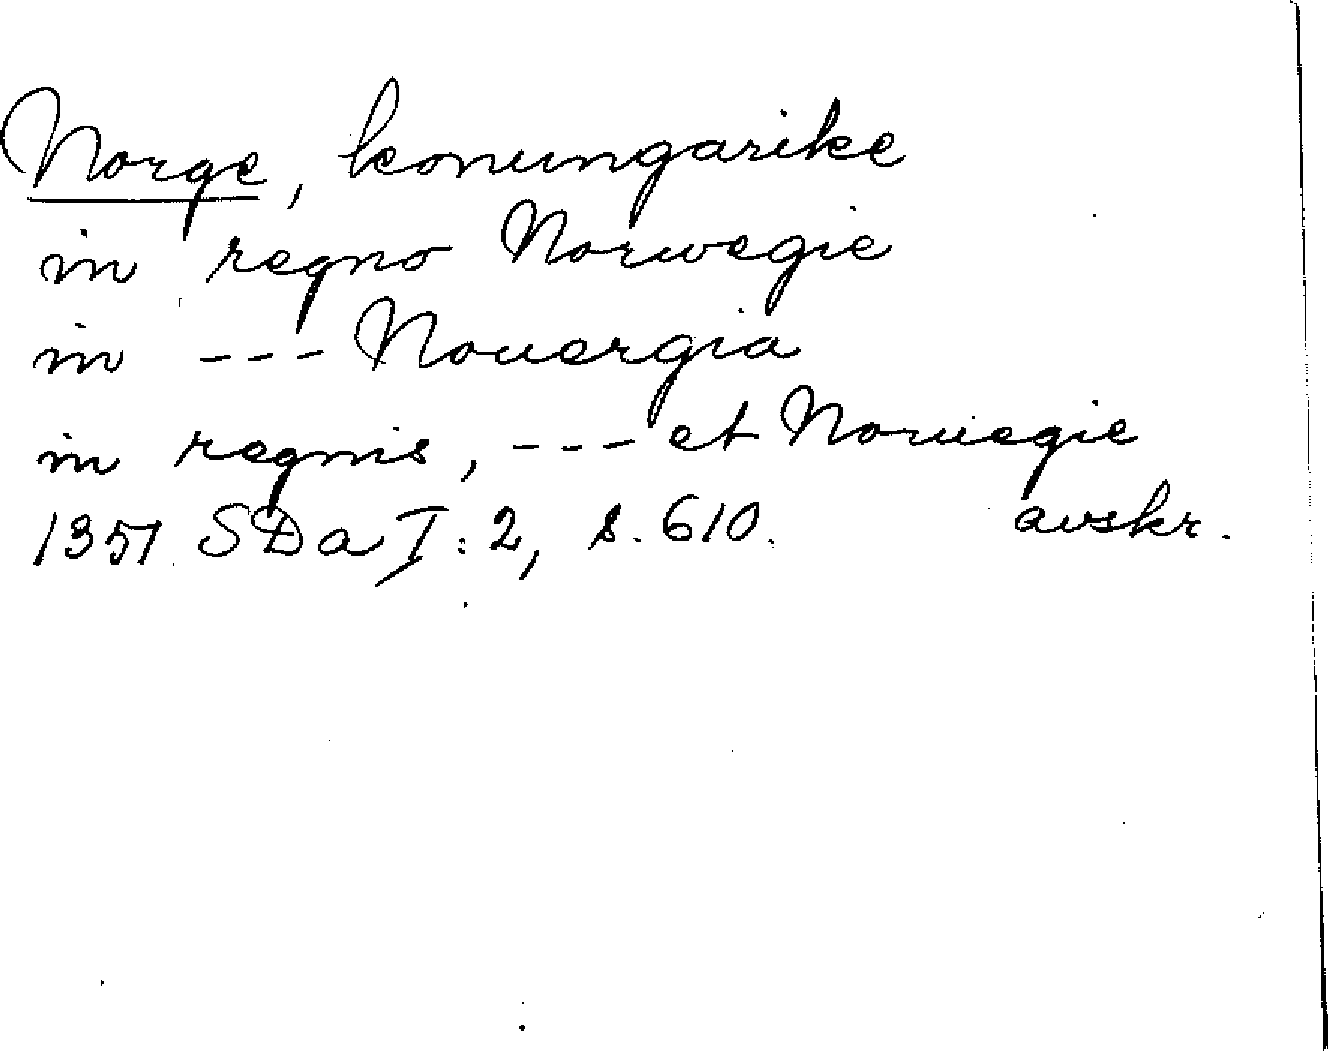 Norge, konungarike
in regno Norwegie
in --- Nouergia
in regnis, --- et Noruegie
1351 SDa I:2, s. 610. avskr.